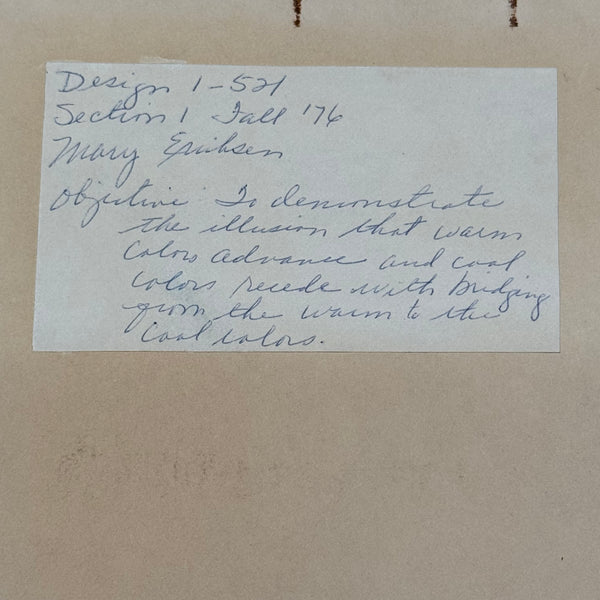 Design 1-521
Section 1 Fall '76
Mary Eriksen
Objective To demonstrate
the illusion that warm
colors advance and cool
colors recede with bridging
from the warm to the
cool colors.